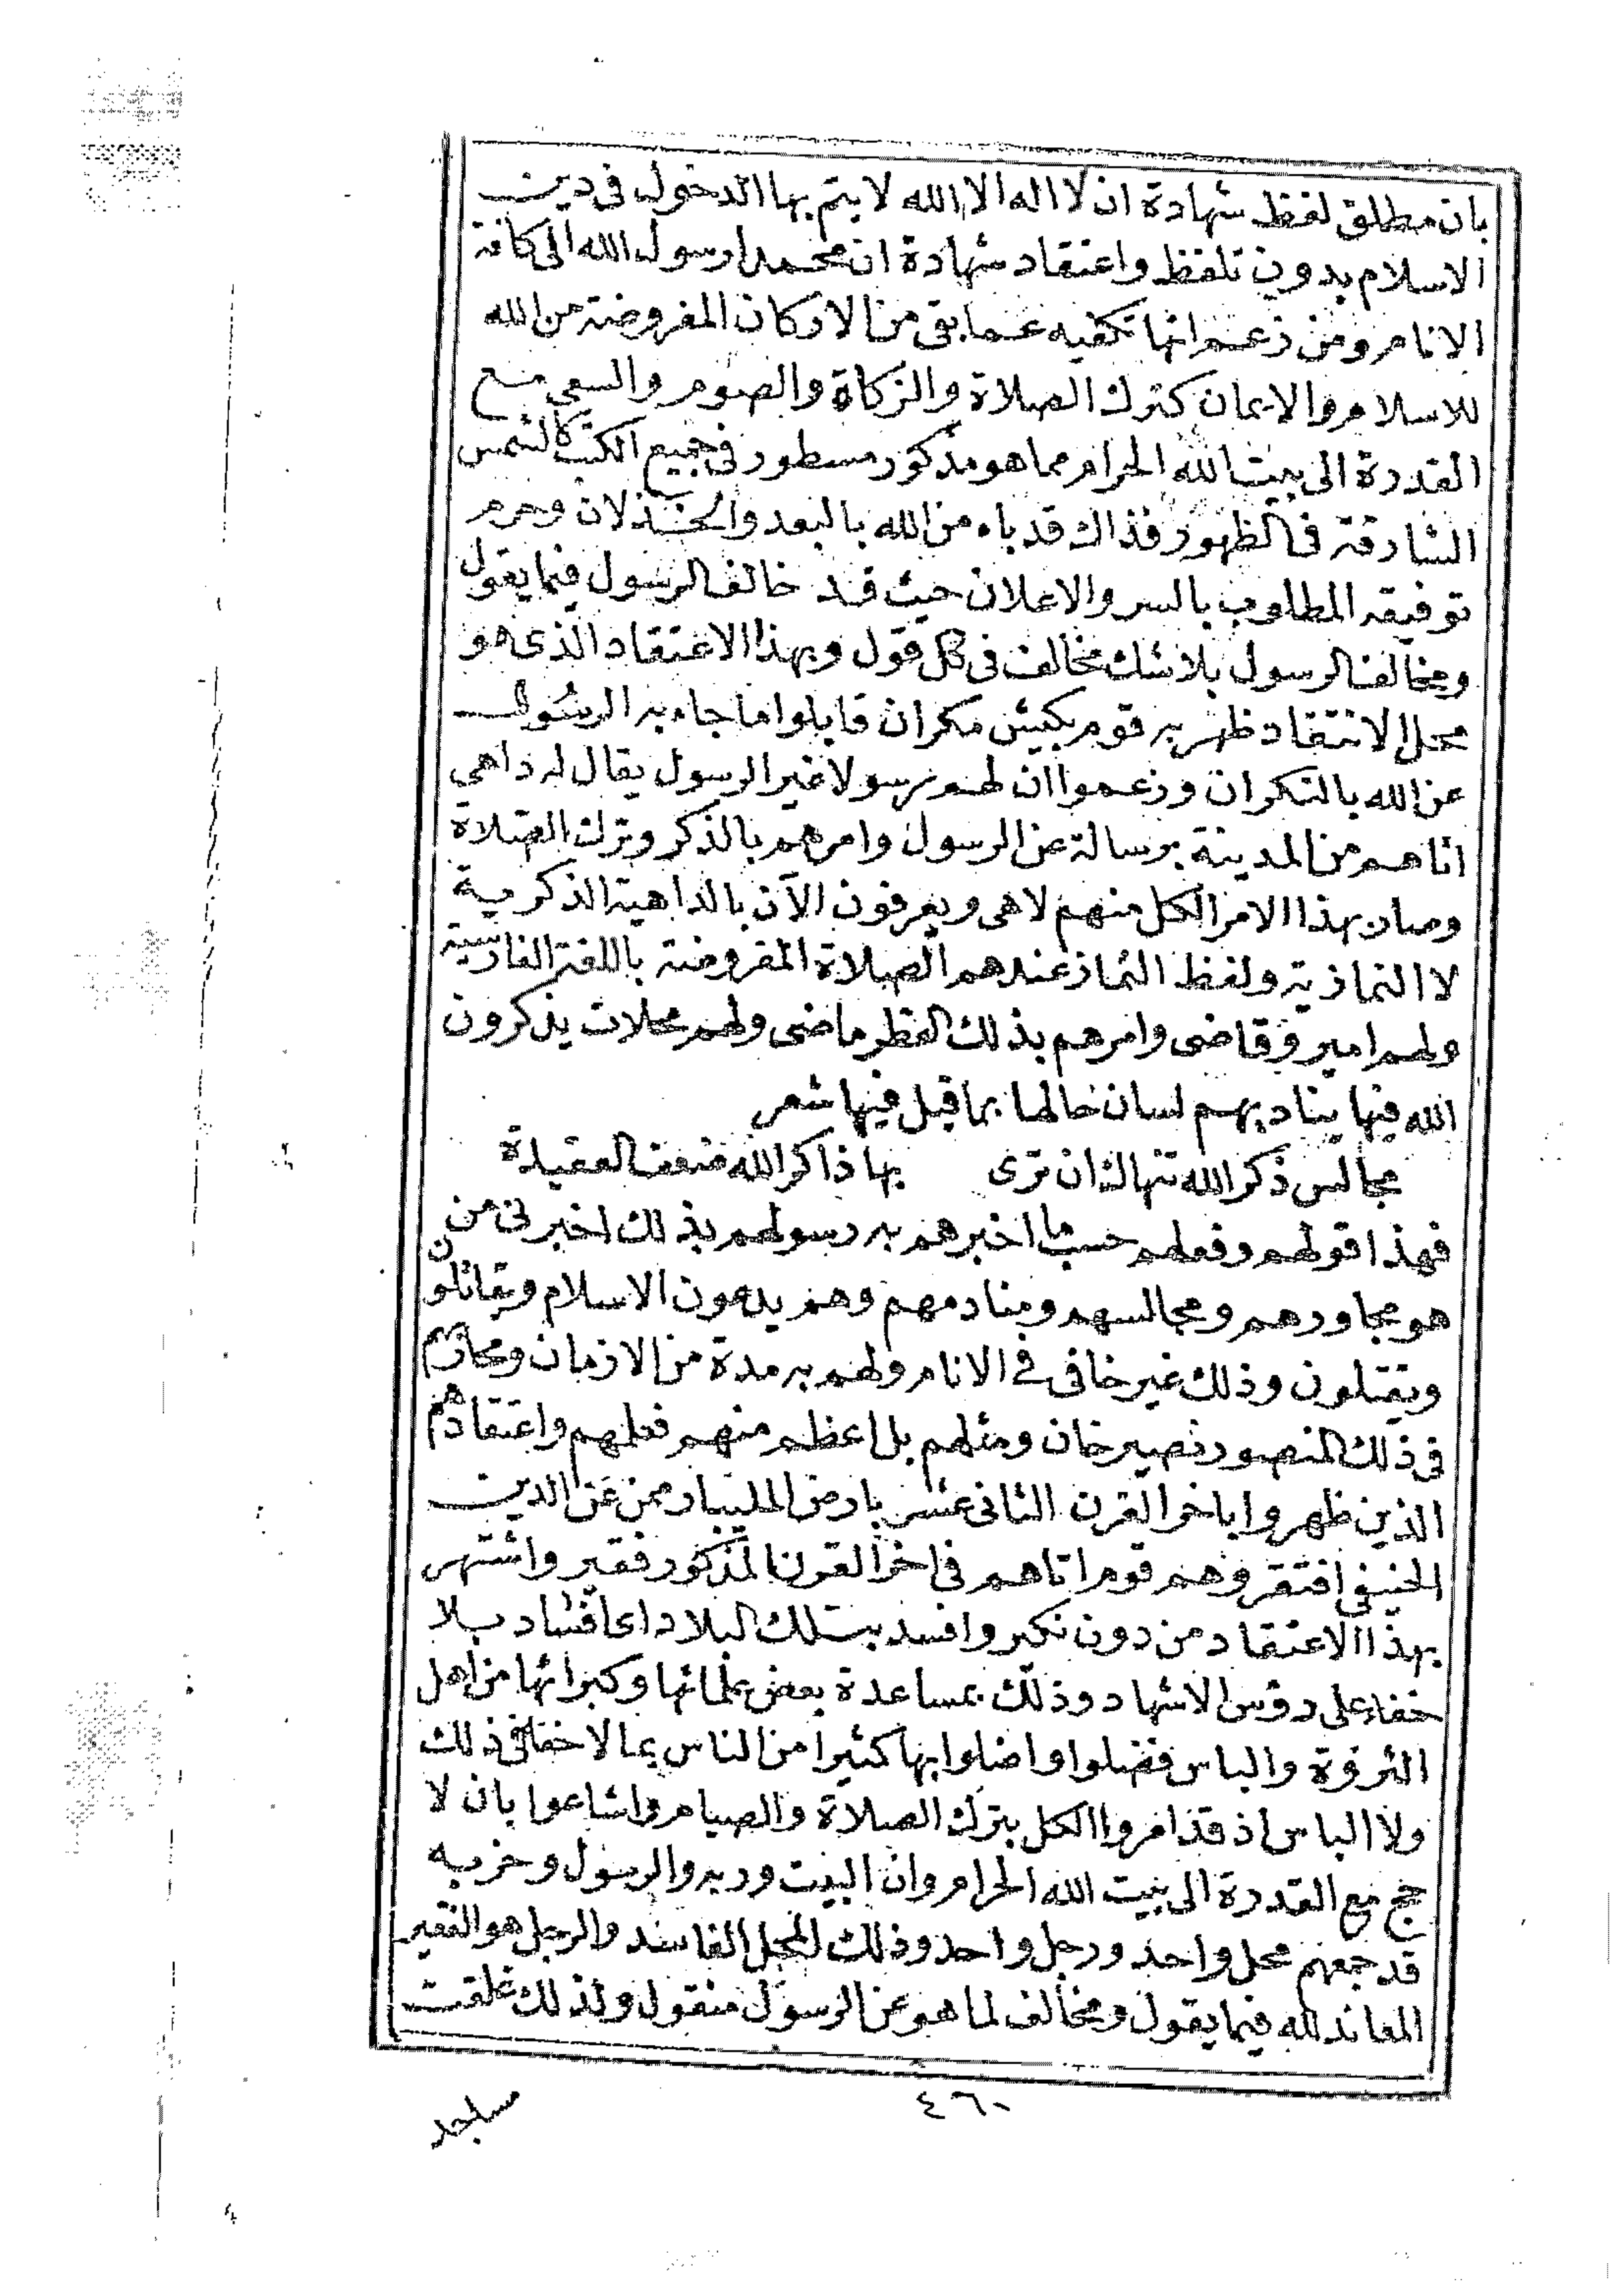 بان مطلق لفظ شهادة ان لا اله الا الله لا يتم بها الدخول فى دين
الاسلام بدون تلفظ واعتقاد شهادة ان محمدا رسول الله الى كافة
الانام ومن زعم انها تكفيه عما بقى من الاركان المفروضة من الله
للاسلام والايمان كترك الصلاة والزكاة والصوم والسعى مع
القدرة الى بيت الله الحرام مما هو مذكور مسطور فى جميع الكتب كالشمس
الشارقة فى الظهور فذاك قد باء من الله بالبعد والخذلان وحرم
توفيقه المطلوب بالسر والاعلان حيث قد خالف الرسول فيما يقول
ومخالف الرسول بلا شك مخالف فى كل قول وبهذا الاعتقاد الذى هو
محل الانتقاد ظهر به قوم بكيش مكران قابلوا ما جاء به الرسول
عن الله بالنكران وزعموا ان لهم رسولا غير الرسول يقال له داهى
اتاهم من المدينة برسالة عن الرسول وامرهم بالذكر وترك الصلاة
وصار بهذا الامر الكل منهم لاهى ويعرفون الآن بالداهية الذكرية
لا النماذية ولفظ النماذ عندهم الصلاة المفروضة باللغة الفارسية
ولهم امير وقاضى وامرهم بذلك القطر ماضى ولهم محلات يذكرون
الله فيها يناديهم لسان حالها بما قيل فيها شعر
مجالس ذكر الله تنهاك ان ترى بها ذاكر الله ضعف العقيدة
فهذا قولهم وفعلهم حسب ما اخبرهم به رسولهم بذلك اخبرنى من
هو مجاورهم ومجالسهم ومنادمهم وهم يدعون الاسلام ويقاتلون
ويقتلون وذلك غير خافى فى الانام ولهم به مدة من الازمان ومحاربهم
فى ذلك المنصور نصير خان ومثلهم بل اعظم منهم فعلهم واعتقادهم
الذين ظهروا باخر القرن الثانى عشر بارض المليبار ممن عن الدين
الحنيفى افتقر وهم قوم اتاهم فى اخر القرن المذكور فقير واشتهر
بهذا الاعتقاد من دون نكير وافسد بتلك البلاد اى افساد بلا
خفاء على رؤس الاشهاد وذلك بمساعدة بعض علمائها وكبرائها من اهل
الثروة والباس فضلوا واضلوا بها كثيرا من الناس بما لا خفا فى ذلك
ولا الباس اذ قد امروا الكل بترك الصلاة والصيام واشاعوا بان لا
حج مع القدرة الى بيت الله الحرام وان البيت وربه والرسول وحزبه
قد جمعهم محل واحد ورجل واحد وذلك المحل الفاسد والرجل هو الفقير
المعاند لله فيما يقول ومخالف لما هو عن الرسول منقول ولذلك غلقت
٤٦٠
مساجد